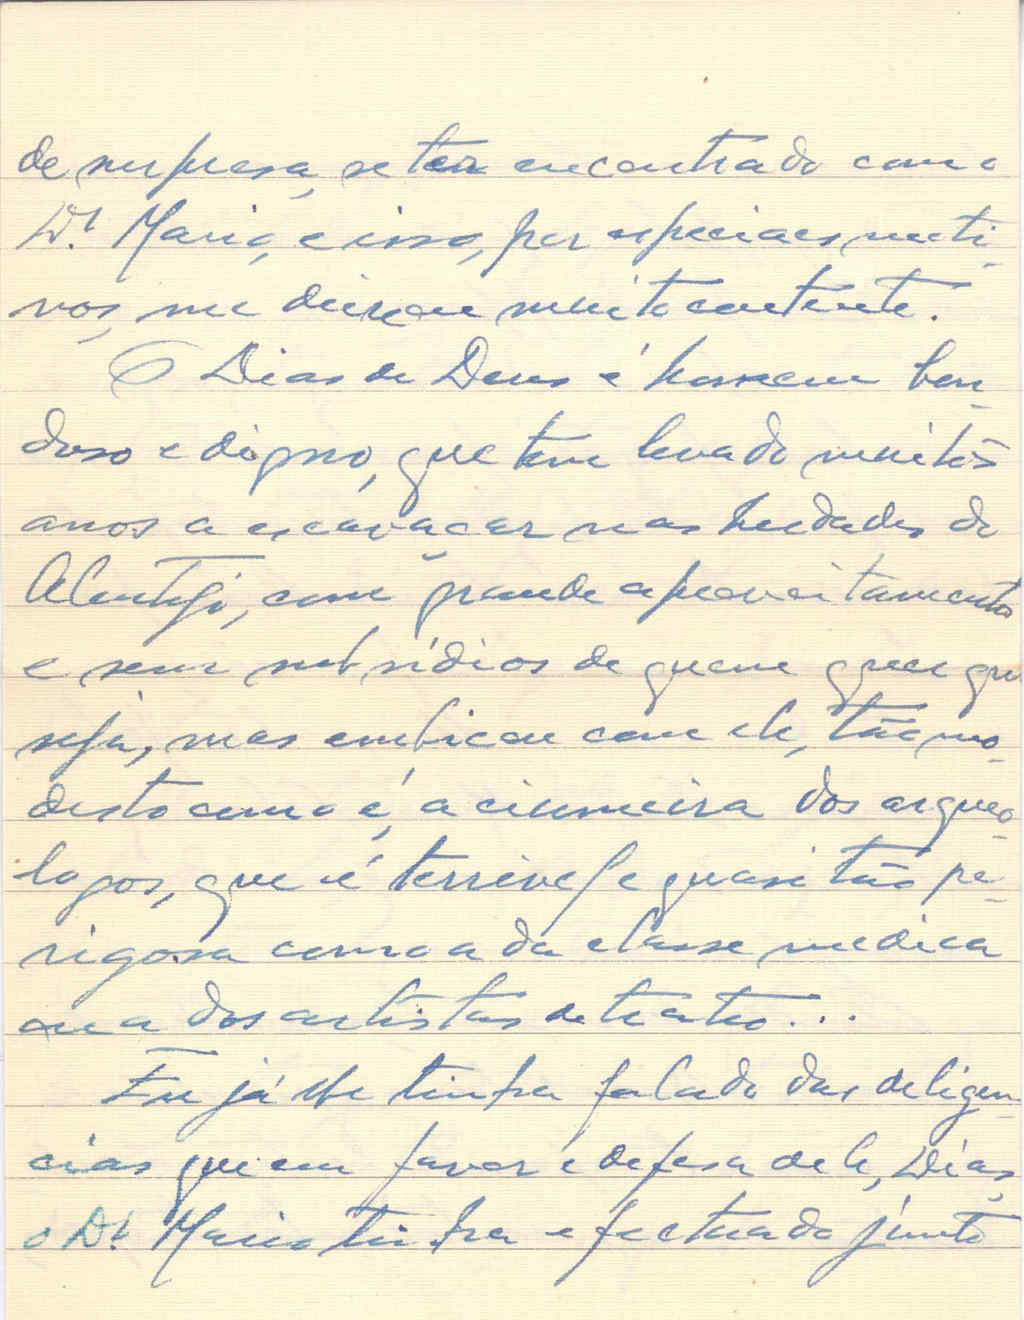 de surpresa, se ter encontrado com o
Dr. Mario, e isso, por especiaes moti-
vos, me deixou muito contente.
O Dias de Deus é homem bon-
doso e digno, que tem levado muitos
anos a escavaçar nas herdades do
Alentejo, com grande aproveitamento
e sem subsídios de quem quer que
seja, mas embicou com ele, tão mo-
desto como é, a ciumeira dos arqueo-
logos, que é terrivel e quasi tão pe-
rigosa como a da classe medica
ou a dos artistas de teatro...
Eu já lhe tinha falado das deligen-
cias que em favor e defesa dele, Dias,
o Dr. Mario tinha efectuado junto